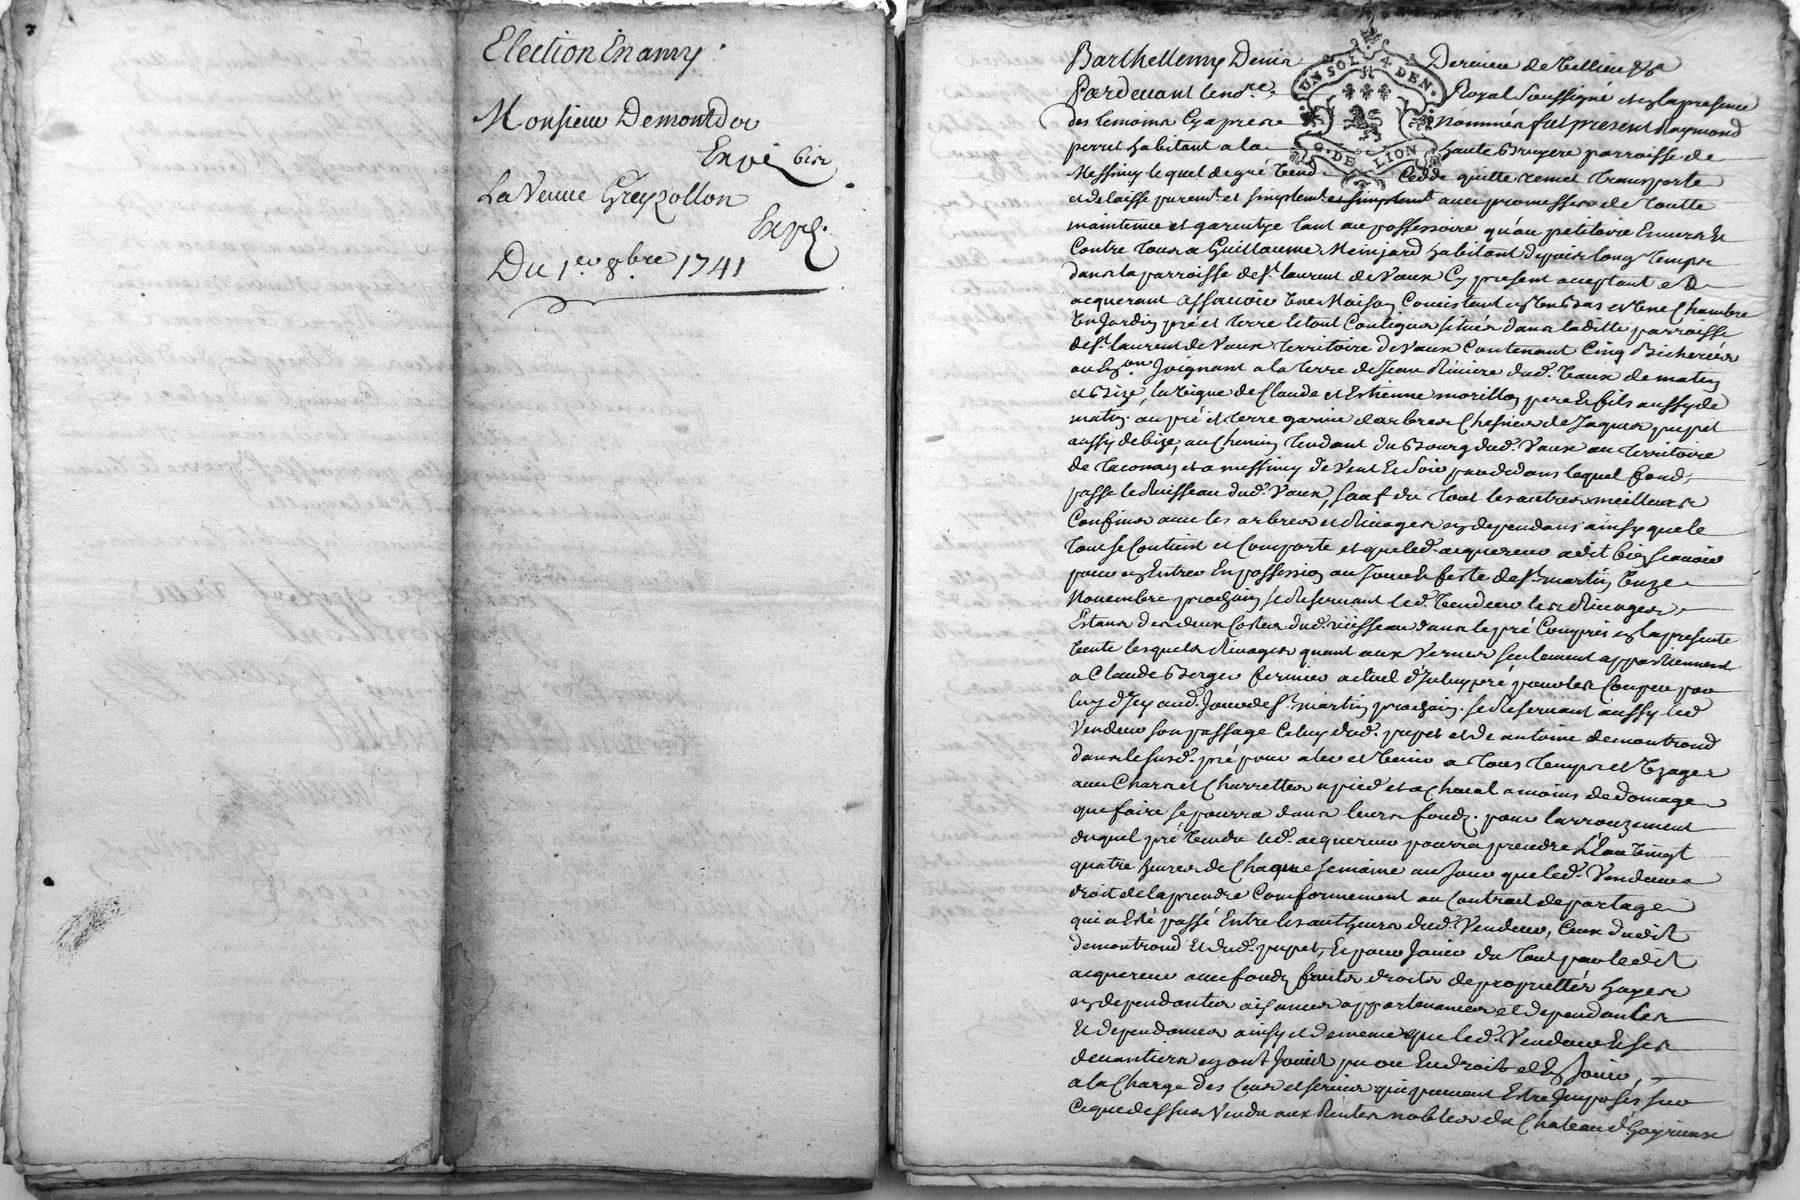 Election En amy
Monsieur Demontdor
Expé bis
La Veuve Greyzollon
Expé.
Du 1er 8bre 1741
UN SOL 4 DEN.
G. DE LION
Barthellemy Denis Dernieu de Vellieu
Pardevant le nore. Royal soussigné et en la presence
des temoins Cy apres nommés fut present Raymond
perret habitant a la haute Bruyere parroisse de
Messimy lequel de gré Vend Cedde quitte remet transporte
et delaisse purement et simplemt et simplement avec promesses de toutte
maintenue et garentye tant au possessoire qu'au petitoire Envers et
Contre tous a Guillaume Meinjard habitant depuis long temps
dans la parroisse de st. laurent de Vaux Cy present acceptant et
acquerant assavoir Une Maison Concistant en Un bas et Une Chambre
Un Jardin pré et terre le tout Contigus situés dans laditte parroisse
de st. laurent de Vaux territoire de Vaux Contenant Cinq Bicherées
ou Enon Joignant a la terre de Jean Riviere dud. Vaux de matin
et Bize, la Vigne de Claude et Estienne morillon pere et fils aussy de
matin. au pré et terre garnie d'arbres Chesnes de Jaques pupet
aussy de bize, au Chemin tendant du Bourg dud. Vaux au territoire
de taconay et a messimy de Vent et Soir par dedans lequel fond
passe le Ruisseau dud. Vaux, sauf du tout les autres meilleurs
Confins avec les arbres et Rivages en dependans ainsy que le
tout se Contient et Comporte et que led. acquereur a dit bien scavoir
pour en Entrer En possession au Jour et feste de st. martin Unze
Novembre prochain se Reservant led. Vendeur les Rivages
Estans des deux Costes dud. ruisseau dans le pré Compris en la presente
Vente lesquels Rivages quant aux Vernes seulement appartiennent
a Claude Berger fermier actuel d'Iceluy pré pour les Couper par
luy d'Icy aud. Jour de st. martin prochain. se Reservant aussy led
Vendeur son passage Celuy dud. pupet et de antoine demontrond
dans le susd. pré pour aler et Venir a tous temps et Usages
avec Chars et Charrettes a pied et a Cheval a moins de domage
que faire se pourra dans leurs fonds. pour l'arrouzement
duquel pré Vendu led. acquereur pourra prendre L'Eau Vingt
quatre heures de Chaque semaine au Jour que led. Vendeur a
droit de la prendre Conformement au Contract de partage
qui a Esté passé Entre les autheurs dud. Vendeur, Ceux dudit
demontrond Et dud. pupet, Et pour Jouir du tout par ledit
acquereur avec fonds fruits droits de proprietté hayes
en dependantes aisances appartenances et dependantes
Et dependences ainsy et de meme que led. Vendeur Et ses
devantiers en ont Jouit pu ou Eu droit d'En Jouir,
a la Charge des Cens et servis qui peuvent Estre Imposés sur
Ceque dessus Vendu aux Rentes nobles du Chateau d'